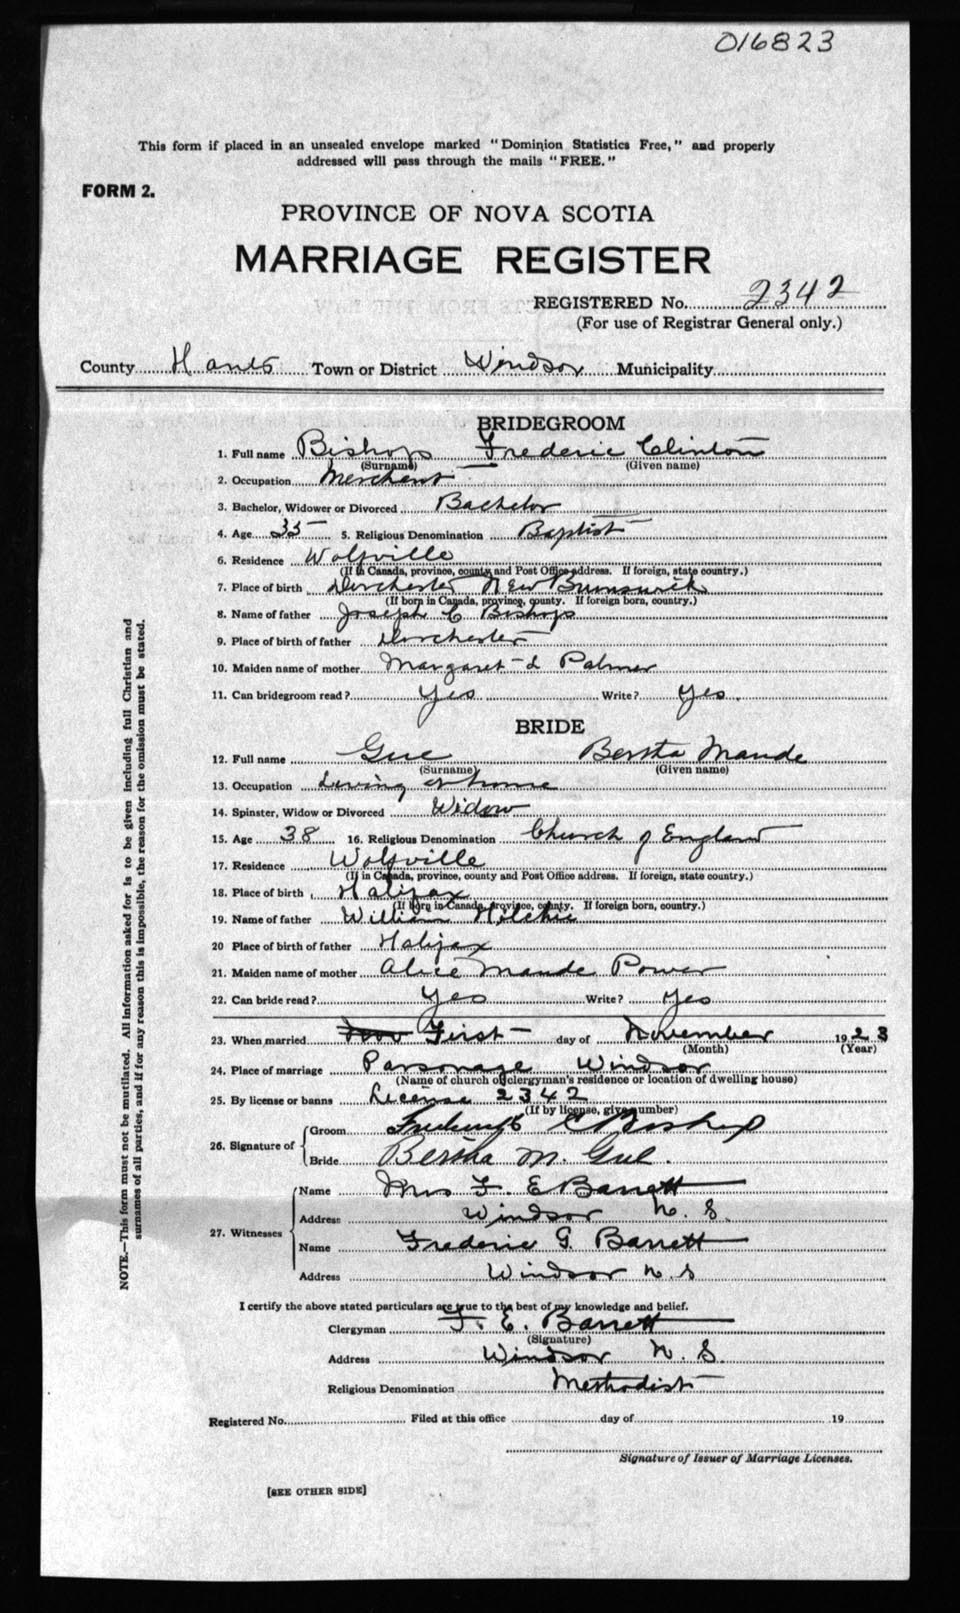 016823
This form if placed in an unsealed envelope marked "Dominion Statistics Free," and properly
addressed will pass through the mails "FREE."
FORM 2.
PROVINCE OF NOVA SCOTIA
MARRIAGE REGISTER
REGISTERED No. 2342
(For use of Registrar General only.)
County Hants Town or District Windsor Municipality
BRIDEGROOM
1. Full name Bishop Frederic Clinton
(Surname) (Given name)
2. Occupation Merchant
3. Bachelor, Widower or Divorced Bachelor
4. Age 35 5. Religious Denomination Baptist
6. Residence Wolfville
(If in Canada, province, county and Post Office address. If foreign, state country.)
7. Place of birth Dorchester New Brunswick
(If born in Canada, province, county. If foreign born, country.)
8. Name of father Joseph C Bishop
9. Place of birth of father Dorchester
10. Maiden name of mother Margaret L Palmer
11. Can bridegroom read? Yes Write? Yes.
BRIDE
12. Full name Gue Bertha Maude
(Surname) (Given name)
13. Occupation Living at home
14. Spinster, Widow or Divorced Widow
15. Age 38 16. Religious Denomination Church of England
17. Residence Wolfville
(If in Canada, province, county and Post Office address. If foreign, state country.)
18. Place of birth Halifax
(If born in Canada, province, county. If foreign born, country.)
19. Name of father William Hilchie
20 Place of birth of father Halifax
21. Maiden name of mother Alice Maude Power
22. Can bride read? Yes Write? Yes
23. When married First day of November 1923
(Month) (Year)
24. Place of marriage Parsonage Windsor
(Name of church or clergyman's residence or location of dwelling house)
25. By license or banns License 2342
(If by license, give number)
26. Signature of Groom C Bishop
Bride Bertha M. Gue.
27. Witnesses Name Mrs F. E Barrett
Address Windsor N. S.
Name Frederic G. Barrett
Address Windsor N. S
I certify the above stated particulars are true to the best of my knowledge and belief.
Clergyman F. E. Barrett
(Signature)
Address Windsor N. S.
Religious Denomination Methodist
Registered No. Filed at this office day of 19
Signature of Issuer of Marriage Licenses.
[SEE OTHER SIDE]
NOTE.—This form must not be mutilated. All information asked for is to be given including full Christian and
surnames of all parties, and if for any reason this is impossible, the reason for the omission must be stated.